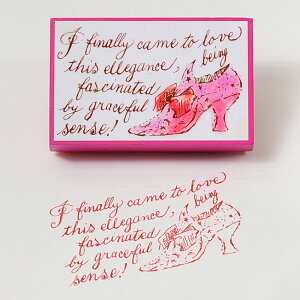 I finally came to love
this ellegance, I being
fascinated
by graceful
sense!
I finally came to love
this ellegance, I being
fascinated
by graceful
sense!